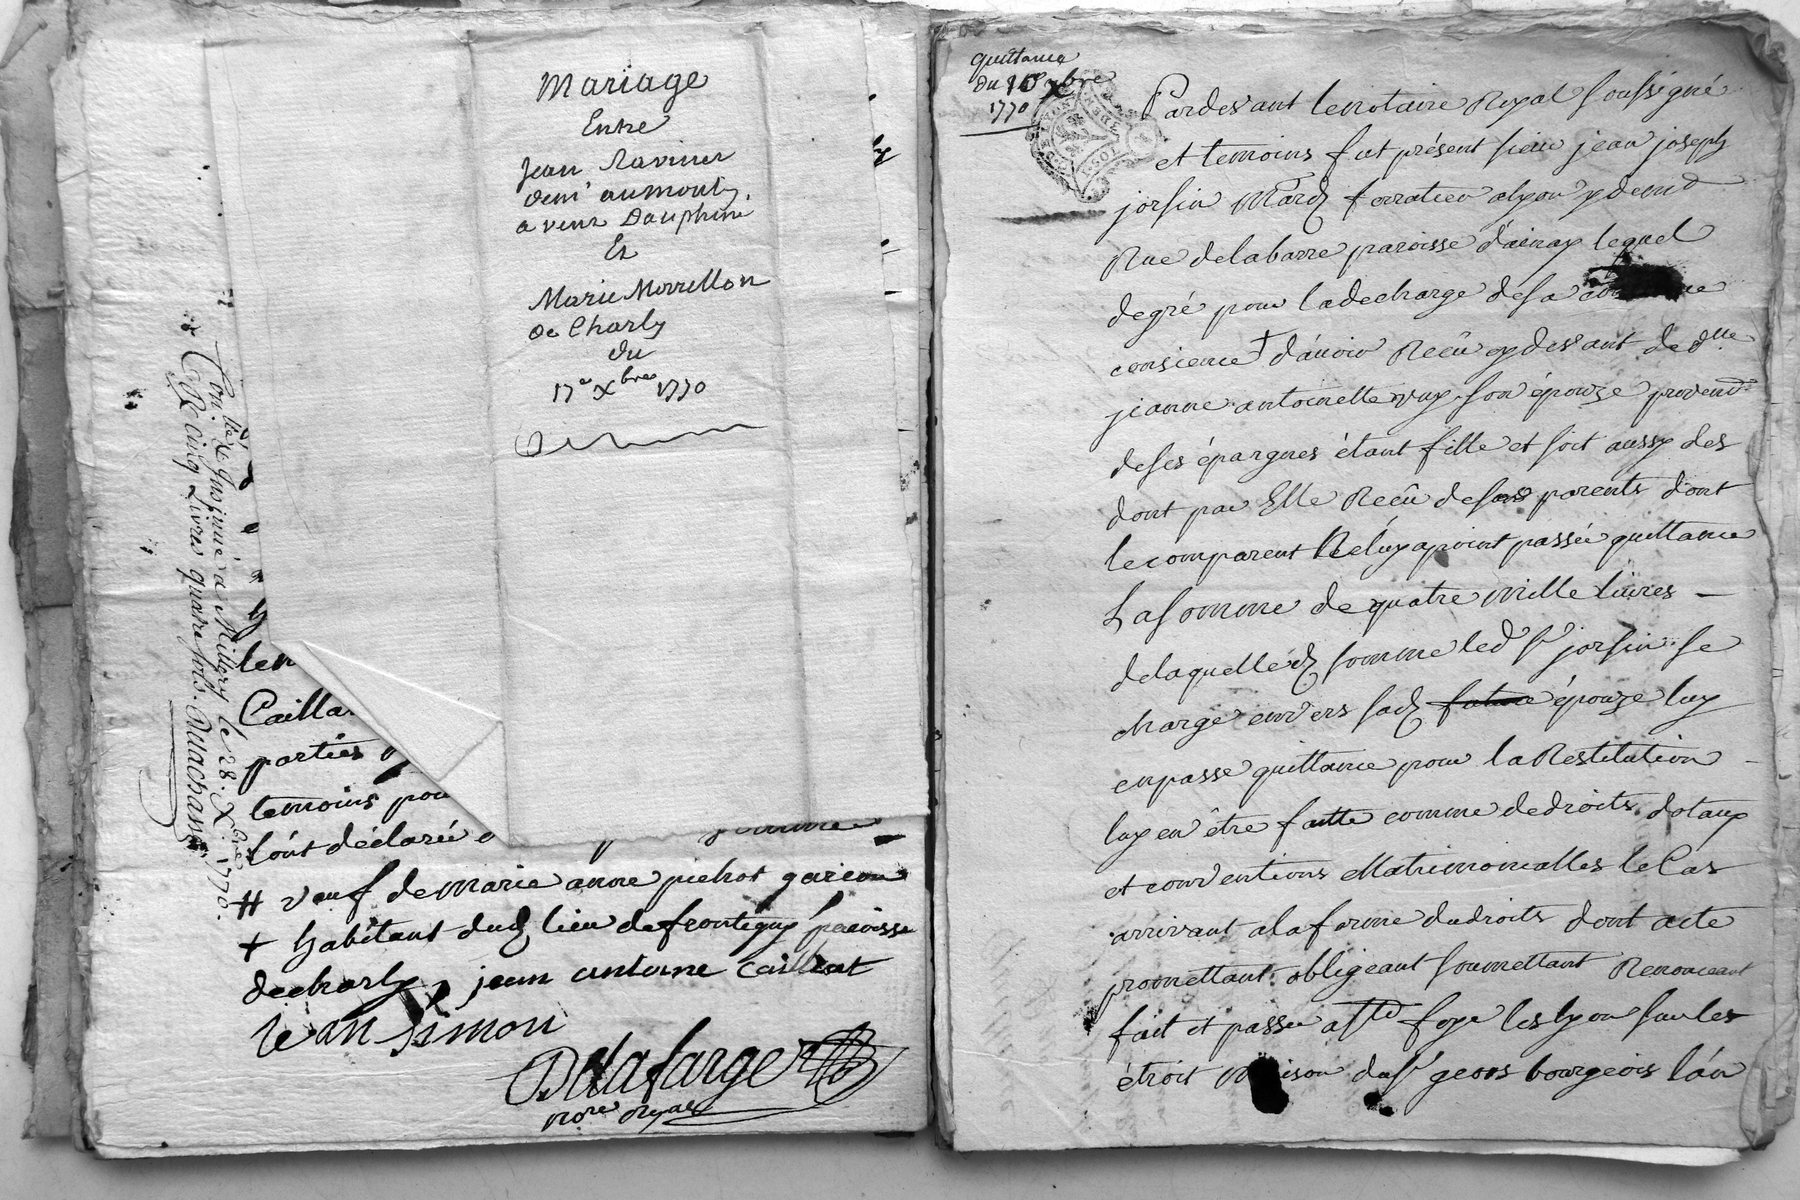 Mariage
Entre
Jean Ravinur
aumont
Dauphiné
Et
Marie Morrellon
de Charly
du
17e Xbre 1770
Con.lé & Insinué à Millery le 28. Xbre 1770.
cinq Livres quatre sols. Duachasa
Cailla
parties
temoins pou
l'ont déclaré
# veuf de marie anne pichot garcon
+ habitant dud lieu de frontigny paroisse
de charly jean antoine Caillat
jean simon
Delafarge
nore Royal
quittance
du 10e xbre
1770
DE LYON
Pardevant le notaire Royal soussigné
et temoins fut présent sieur jean joseph
jorsin Mard ferratier alyon y demt
Rue delabarre paroisse d'ainay lequel
degré pour la decharge de sa
consience d'avoir Reçu cy devant de dlle
jeanne antoinette vay son épouze provend
deses épargnes étant fille et soit aussy des
dont par Elle Reçu de ses parents dont
le comparent Ne luy a point passée quittance
La somme de quatre mille livres —
delaquelle d somme led sr jorsin se
charge envers sad future épouze luy
en passe quittance pour la Restitution
luy en être faitte comme de droits dotaux
et conventions Matrimonialles le Cas
arrivant a la forme du droits dont acte
promettant obligeant soumettant Renonceant
fait et passé a ste foye les lyon sur les
étroit maison du sr geors bourgeois l'an